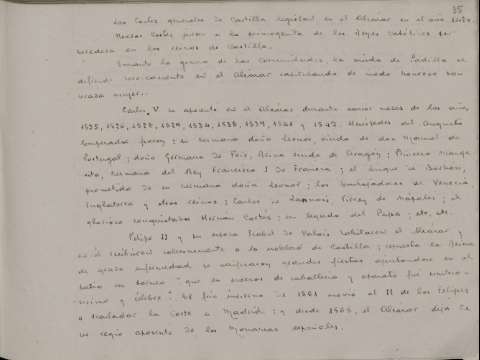 35
Las Cortes generales de Castilla en el Alcázar en el año 1480.
Dichas Cortes juran a la primogenita de los Reyes Católicos por
heredera en los reinos de Castilla.
Durante la guerra de las Comunidades la viuda de Padilla se
defendió en el Alcázar capitulando de modo honroso
mujer.
Carlos V se aposentó en el Alcázar durante varios meses de los años,
1525, 1526, 1528, 1529, 1534, 1538, 1539, 1541 y 1542. Huéspedes del Augusto
Emperador fueron: su hermana doña Leonor, viuda de don Manuel de
Portugal; doña Germana de Foix, Reina viuda de Aragón;
hermana del Rey Francisco I de Francia; el duque de Borbón,
prometido de su hermana doña Leonor; los Embajadores de Venecia
Inglaterra y otros reinos; Carlos de Lannois Virrey de Nápoles; el
glorioso conquistador Hernán Cortés; un legado del Papa; etc, etc.
Felipe II y su esposa Isabel de Valois habitaron el Alcázar y
en él recibieron solemnemente a la nobleza de Castilla; repuesta la Reina
de grave enfermedad se verificaron grandes fiestas en el
patio un torneo "que en exceso de caballeros y aparato fué
y célebre". El frío de 1561 movió al de los Felipes
a trasladar la Corte a Madrid; y desde 1565, el Alcázar deja de
ser regio aposento de los Monarcas españoles.